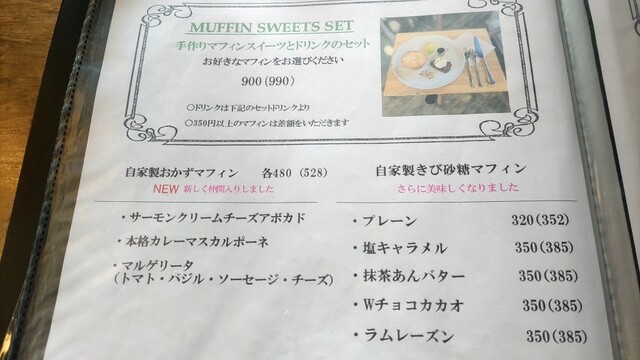 MUFFIN SWEETS SET
手作りマフィンスイーツとドリンクのセット
お好きなマフィンをお選びください
900(990)
○ドリンクは下記のセットドリンクより
○350円以上のマフィンは差額をいただきます
自家製おかずマフィン 各480 (528)
NEW 新しく仲間入りしました
・サーモンクリームチーズアボカド
・本格カレーマスカルポーネ
・マルゲリータ
(トマト・バジル・ソーセージ・チーズ)
自家製きび砂糖マフィン
さらに美味しくなりました
・プレーン 320(352)
・塩キャラメル 350(385)
・抹茶あんバター 350(385)
・Wチョコカカオ 350(385)
・ラムレーズン 350(385)